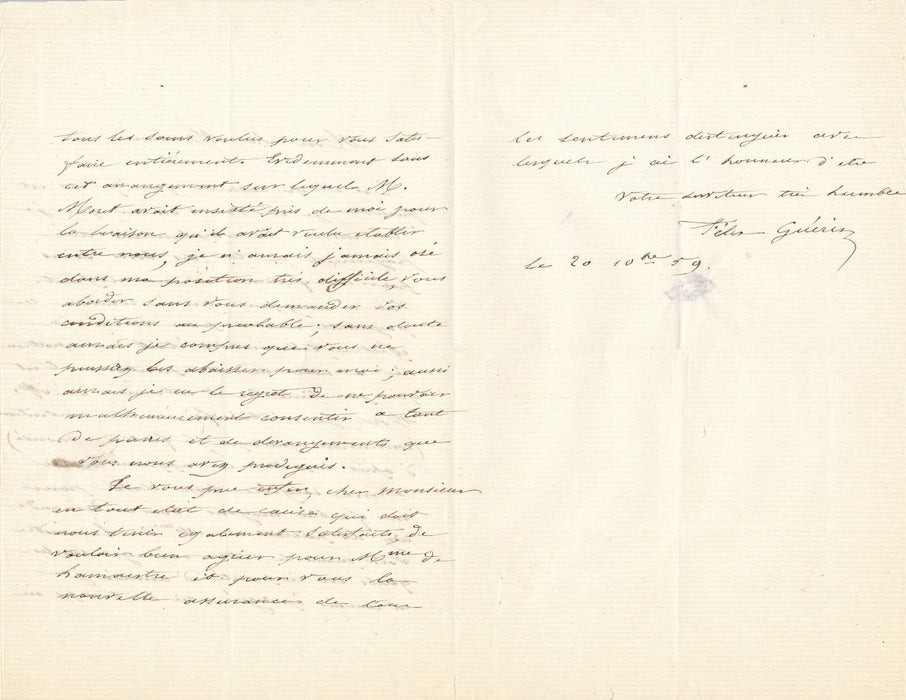 tous les soins voulus pour vous satis
faire entièrement. Evidemment sans
cet arrangement sur lequel M.
Mont avait insisté près de moi pour
la liaison qu'il avait voulu etablir
entre nous, je n'aurais jamais osé
dans ma position très difficile, vous
aborder sans vous demander vos
conditions au préalable; sans doute
aurais je compris que vous ne
pussiez les abaisser pour moi; aussi
aurais je eu le regret de ne pouvoir
malheureusement consentir a tout
de peines et de derangements que
vous nous avez prodigués.
Je vous prie enfin, cher Monsieur
en tout etat de cause qui doit
nous tenir egalement satisfaits, de
vouloir bien agréer pour Mme de
et pour vous la
nouvelle assurances de tous
les sentimens distingués avec
lesquels j'ai l'honneur d'etre
Votre serviteur très humble
Félix Guérin
le 20 10bre 59.